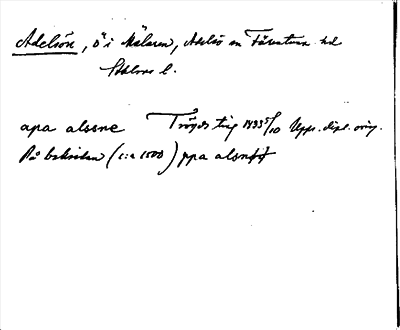 Adelsön, ö i Mälaren, Adelsö sn Färentuna hd
Sthlms l.
apa alssne Trögds ting 1433 5/10 Upps. dipl. orig.
På baksidan (c:a 1500) ppa alsnö